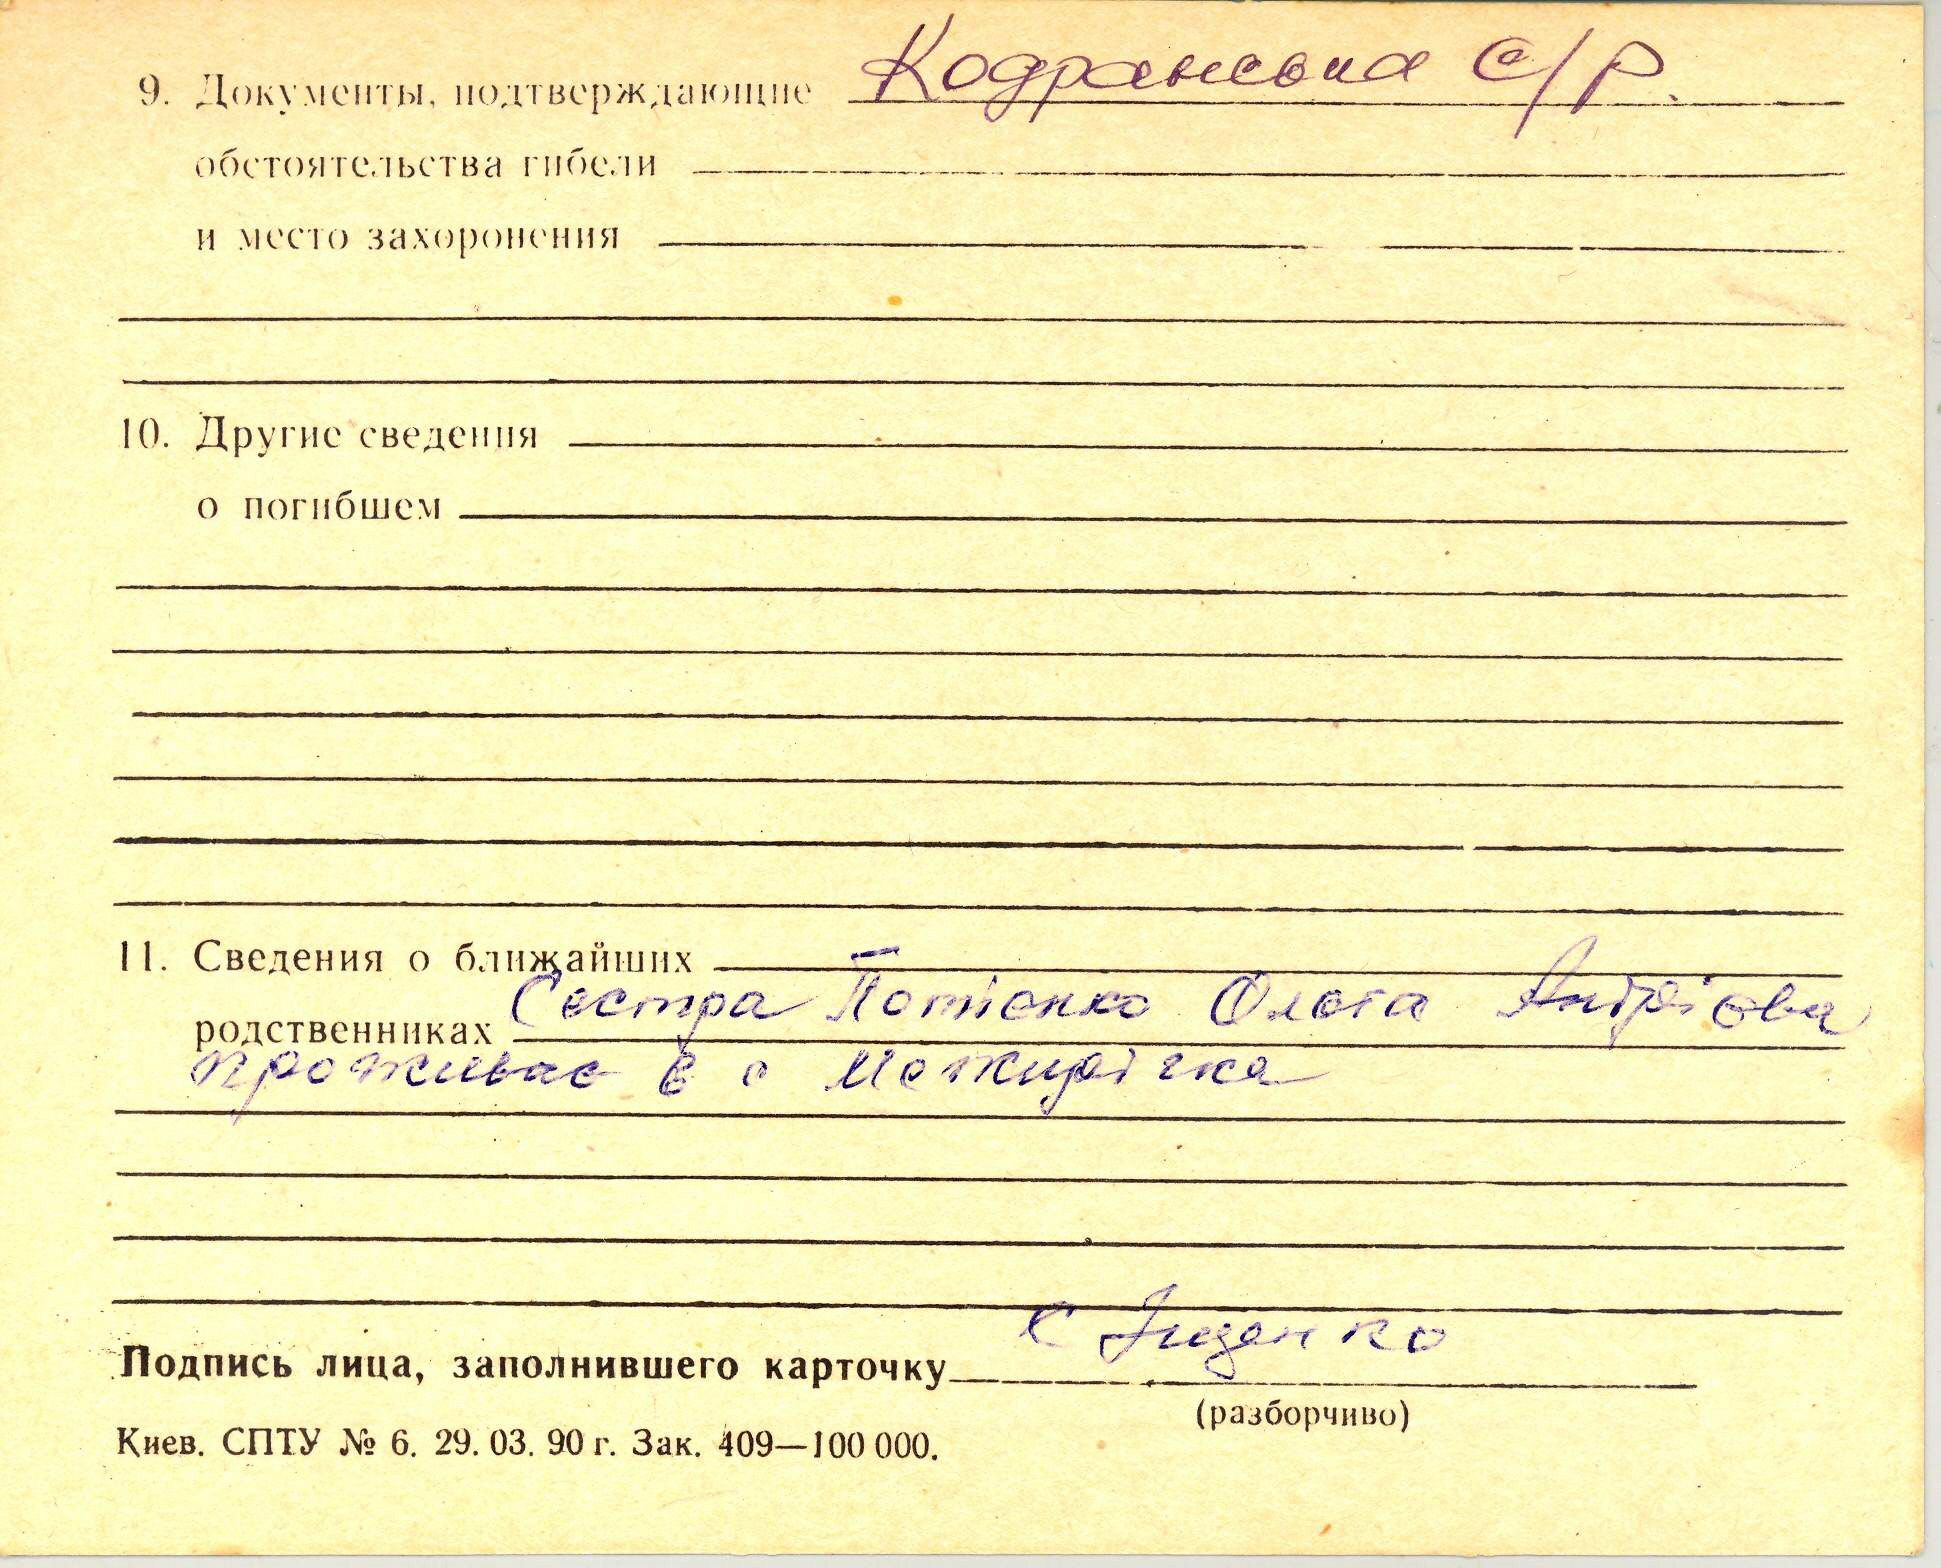 9. Документы, подтверждающие Кодранська с/р.
обстоятельства гибели
и место захоронения
10. Другие сведения
о погибшем
11. Сведения о ближайших
родственниках Сестра Потієнко Ольга Андріївна
проживає в с Межирічка
Подпись лица, заполнившего карточку Іщенко
(разборчиво)
Киев. СПТУ № 6. 29. 03. 90 г. Зак. 409—100 000.